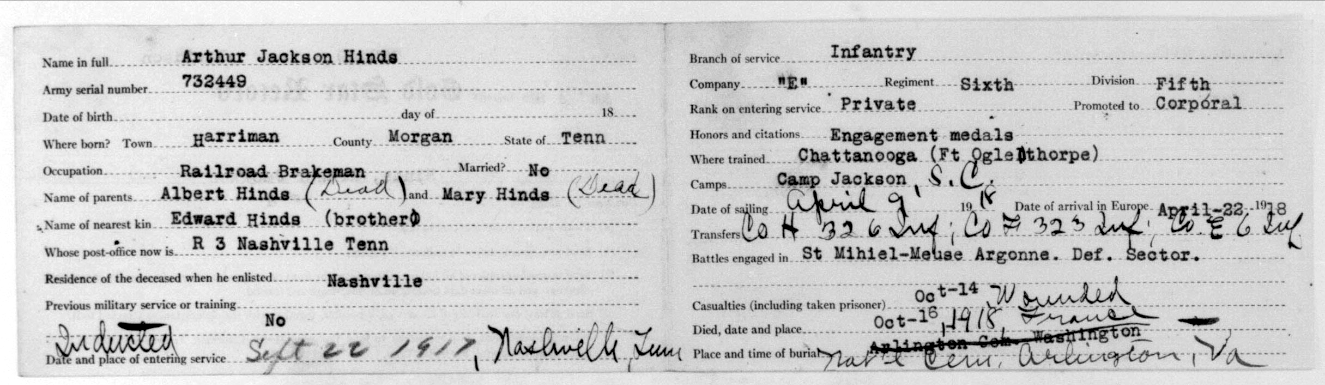 Name in full Arthur Jackson Hinds
Army serial number 732449
Date of birth day of 18
Where born? Town Harriman County Morgan State of Tenn
Occupation Railroad Brakeman Married? No
Name of parents Albert Hinds (Dead) and Mary Hinds (Dead)
Name of nearest kin Edward Hinds (brother)
Whose post-office now is R 3 Nashville Tenn
Residence of the deceased when he enlisted Nashville
Previous military service or training
No
Inducted
Date and place of entering service Sept 22 1917, Nashville, Tenn
Branch of service Infantry
Company "E" Regiment Sixth Division Fifth
Rank on entering service Private Promoted to Corporal
Honors and citations Engagement medals
Where trained Chattanooga (Ft Oglethorpe)
Camps Camp Jackson, S.C.
Date of sailing April 9, 1918 Date of arrival in Europe April-22 1918
Transfers Co H 326 Inf; Co F 323 Inf; Co E 6 Inf.
Battles engaged in St Mihiel-Meuse Argonne. Def. Sector.
Casualties (including taken prisoner) Oct-14 Wounded
Died, date and place Oct-16, 1918, France
Arlington Cem. Washington
Place and time of burial Nat'l Cem, Arlington, Va